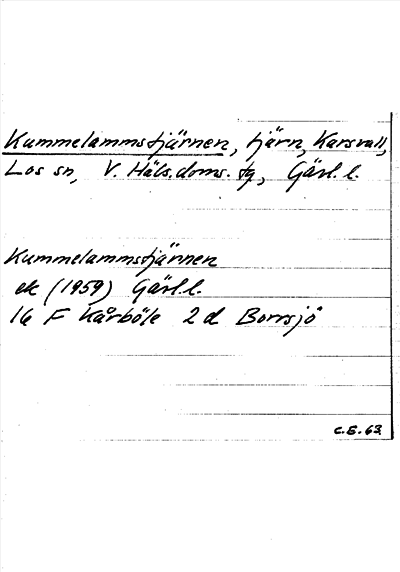 Kummelammstjärnen, tjärn, Karsvall,
Los sn, V. Häls. doms. tg, Gävl. l.
Kummelammstjärnen
ek (1959) Gävl. l.
16 F Kårböle 2 d Borrsjö
C.E. 63